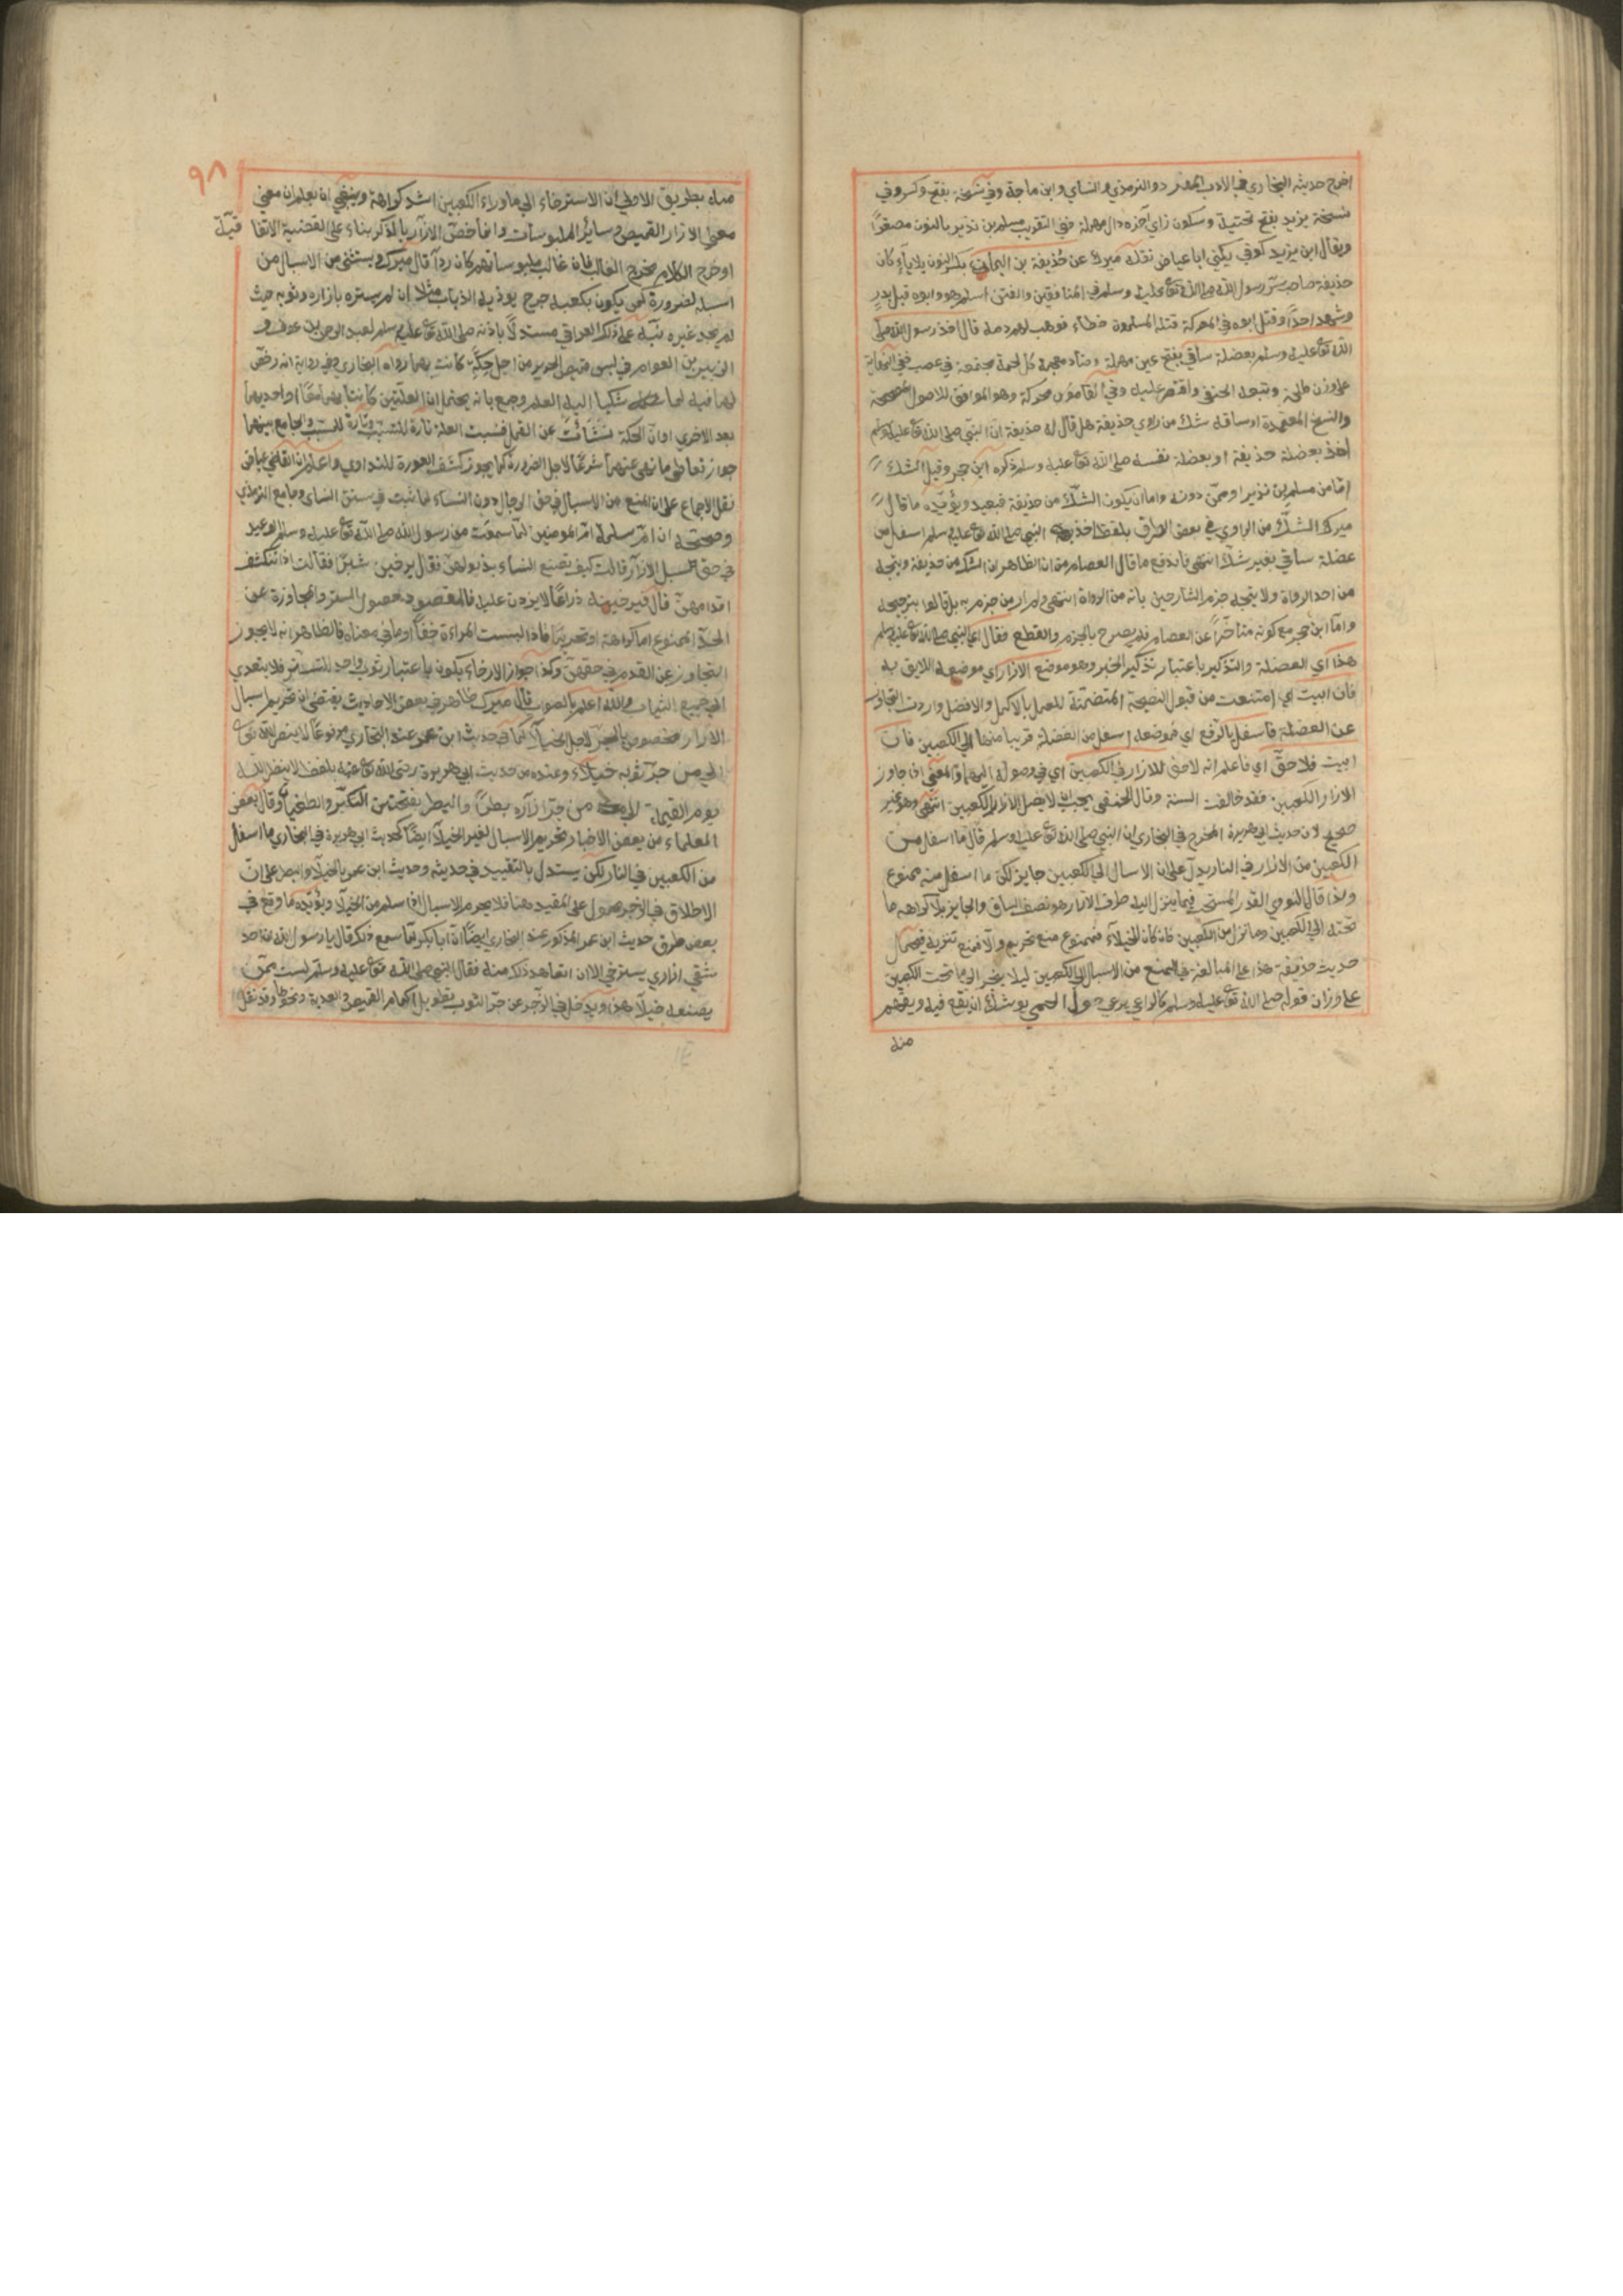 اخرج حديثه البخاري في الادب المفرد والترمذي والنساي وابن ماجة وفي نسخة بفتح وكسر وفي
نسخة يزيد بفتح تحتية وسكون زاي آخره دال مهملة ففي التقريب مسلم بن نذير بالنون مصغرًا
ويقال ابن يزيد كوفي يكني ابا عياض نقله ميرك عن حذيفة بن اليمان بكسر النون بلا ياء كان
حذيفة صاحب سر رسول الله صلى الله تعا عليه وسلم في المنافقين والفتن اسلم هو وابوه قبل بدر
وشهد احدًا وقتل ابوه في المعركة قتله المسلمون خطاء فوهب لهم دمه قال اخذ رسول الله صلى
الله تعا عليه وسلم بعضلة ساقي بفتح عين مهملة وضاد معجمة كل لحمة مجتمعة في عصب ففي النهاية
على وزن طلحة وتبعه الحنفي واقتصر عليه وفي القاموس محركة وهو الموافق للاصول المصححة
والنسخ المعتمدة او ساقه شك من راوي حذيفة هل قال له حذيفة ان النبي صلى الله تعا عليه وسلم
اخذ بعضلة حذيفة او بعضلة نفسه صلى الله تعا عليه وسلم ذكره ابن حجر وقيل الشك
اما من مسلم بن نذير او ممن دونه واما ان يكون الشك من حذيفة فبعيد ويؤيده ما قال
ميرك الشك من الراوي في بعض الطرق بلفظ اخذ النبي صلى الله تعا عليه وسلم اسفل من
عضلة ساقي بغير شك انتهى فاندفع ما قال العصام من ان الظاهر ان الشك من حذيفة ويتجه
من احد الرواة ولا يتجه جزم الشارحين بانه من الرواة انتهى ولم ار من جزم به بل قالوا بترجيحه
واما ابن حجر مع كونه متأخرًا عن العصام فلم يصرح بالجزم والقطع فقال اي النبي صلى الله تعا عليه وسلم
هذا اي العضلة والتذكير باعتبار تذكير الخبر وهو موضع الازار اي موضعه اللايق به
فان ابيت اي امتنعت من قبول النصيحة المتضمنة للعمل بالاكمل والافضل واردت التجاوز
عن العضلة فاسفل بالرفع اي فموضعه اسفل من العضلة قريبا منها الي الكعبين فان
ابيت فلا حق اي فاعلم انه لا حق للازار في الكعبين اي في وصوله اليهما والمعنى اذا جاوز
الازار الكعبين فقد خالفت السنة وقال الحنفي يجب ان لا يصل الازار الكعبين انتهى وهو غير
صحيح لان حديث ابي هريرة المخرج في البخاري ان النبي صلى الله تعا عليه وسلم قال ما اسفل من
الكعبين من الازار في النار يدل على ان الاسبال الى الكعبين جايز لكن ما اسفل منه ممنوع
ولذا قال النووي القدر المستحب فيما ينزل اليه طرف الازار هو نصف الساق والجايز بلا كراهه ما
تحته الى الكعبين وما نزل من الكعبين فان كان للخيلاء فممنوع منع تحريم والا فمنع تنزيه فيحمل
حديث حذيفة هذا على المبالغة في المنع من الاسبال الى الكعبين ليلا ينجر الى ما تحت الكعبين
على وزان قوله صلى الله تعا عليه وسلم كالراعي يرعى حول الحمى يوشك ان يقع فيه ويفهم
منه
٩٨
منه بطريق الاولى ان الاسترخاء الى ما وراء الكعبين اشد كراهة وينبغي ان يعلم ان معنى
معنى الازار القميص وساير الملبوسات وانما خص الازار بالذكر بناء على القضية الاتفا قية
او خرج الكلام مخرج الغالب فان غالب ملبوساتهم كان ردآ قال ميرك ويستثنى من الاسبال من
اسبله لضرورة كمن يكون بكعبه جرح يوذيه الذباب مثلا ان لم يستره بازاره وثوبه حيث
لم يجد غيره نبه على ذلك العراقي مستدلًا باذنه صلى الله تعا عليه وسلم لعبد الرحمن بن عوف و
الزبير بن العوام في لبس قميص الحرير من اجل حكة كانت بهما رواه البخاري وفي رواية انه رخص
لهما فيه لما شكيا اليه القمل وجمع بانه يحتمل ان العلتين كانتا بهما معًا او احديهما
بعد الاخري او ان الحكة نشأت عن القمل فنسبت العلة تارة للسبب وتارة للمسبب والجامع بينهما
جواز تعاطي ما نهي عنه شرعًا لاجل الضرورة كما يجوز كشف العورة للتداوي واعلم ان القاضي عياض
نقل الاجماع على ان المنع من الاسبال في حق الرجال دون النساء لما ثبت في سنن النساى وجامع الترمذي
وصححه ان ام سلمة ام المومنين لما سمعت من رسول الله صلى الله تعا عليه وسلم الوعيد
في حق مسبل الازار قالت كيف تصنع النساء بذيولهن فقال يرخين شبرًا فقالت اذا تنكشف
اقدامهن قال فيرخينه ذراعًا لا يزدن عليه فالمقصود حصول الستر والمجاوزة عن
الحد الممنوع اما كراهة او تحريمًا فاذا لبست المراءة خفًا او ما في معناه فالظاهر انه لا يجوز
التجاوز عن القدم في حقهن وكذا جواز الارخاء يكون باعتبار ثوب واحد للتستر فلا يتعدي
الى جميع الثياب والله اعلم بالصواب قال ميرك ظاهر بعض الاحاديث يقتضي ان تحريم اسبال
الازار مخصوص بالجر لاجل الخيلاء كما في حديث ابن عمر عند البخاري مرفوعًا لا ينظر الله تعالى
الى من جر ثوبه خيلاء وعنده من حديث ابي هريرة رضي الله تعا عنه بلفظ لا ينظر الله
يوم القيمة من جر ازاره بطرًا والبطر بفتحتين التكبر والطغيان وقال بعض
العلماء من بعض الاخبار تحريم الاسبال لغير الخيلاء ايضًا كحديث ابي هريرة في البخاري ما اسفل
من الكعبين في النار لكن يستدل بالتقييد في حديثه وحديث ابن عمر بالخيلاء والبطر على ان
الاطلاق في الاخير محمول على المقيد هنا فلا يحرم الاسبال اذا سلم من الخيلاء ويؤيده ما وقع في
بعض طرق حديث ابن عمر المذكور عند البخاري ايضًا ان ابا بكر لما سمع ذلك قال يا رسول الله ان احد
شقي ازاري يسترخي الا ان اتعاهد ذلك منه فقال النبي صلى الله تعا عليه وسلم لست ممن
يصنعه خيلاء هذا ويدخل في الزجر عن جر الثوب تطويل اكمام القميص والعذبة ونحوها وقد نقل